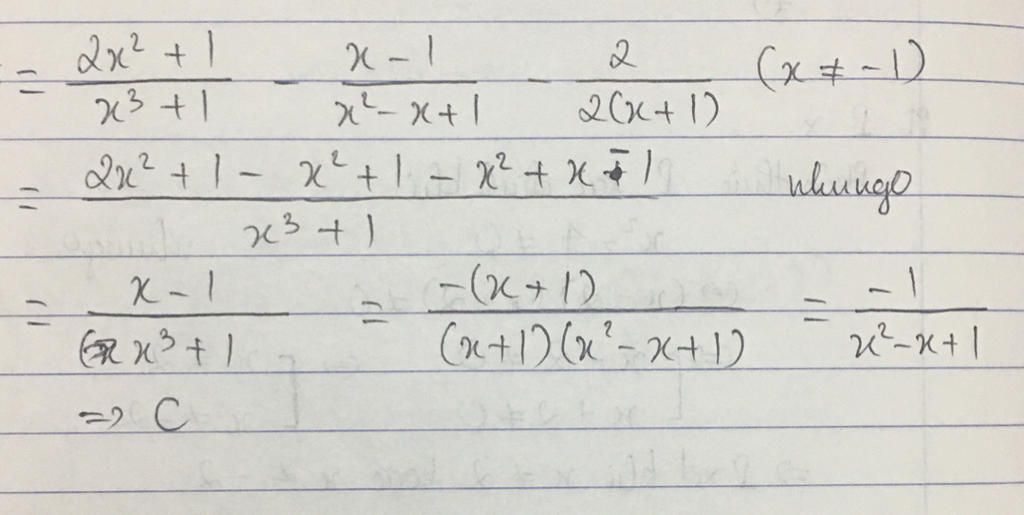 = \frac{2x² + 1}{x³ + 1} - \frac{x - 1}{x² - x + 1} - \frac{2}{2(x + 1)} (x ≠ -1)
= \frac{2x² + 1 - x² + 1 - x² + x - 1}{x³ + 1} nhungo
= \frac{x - 1}{x³ + 1} = \frac{-(x + 1)}{(x+1)(x² - x + 1)} = \frac{-1}{x² - x + 1}
=> C